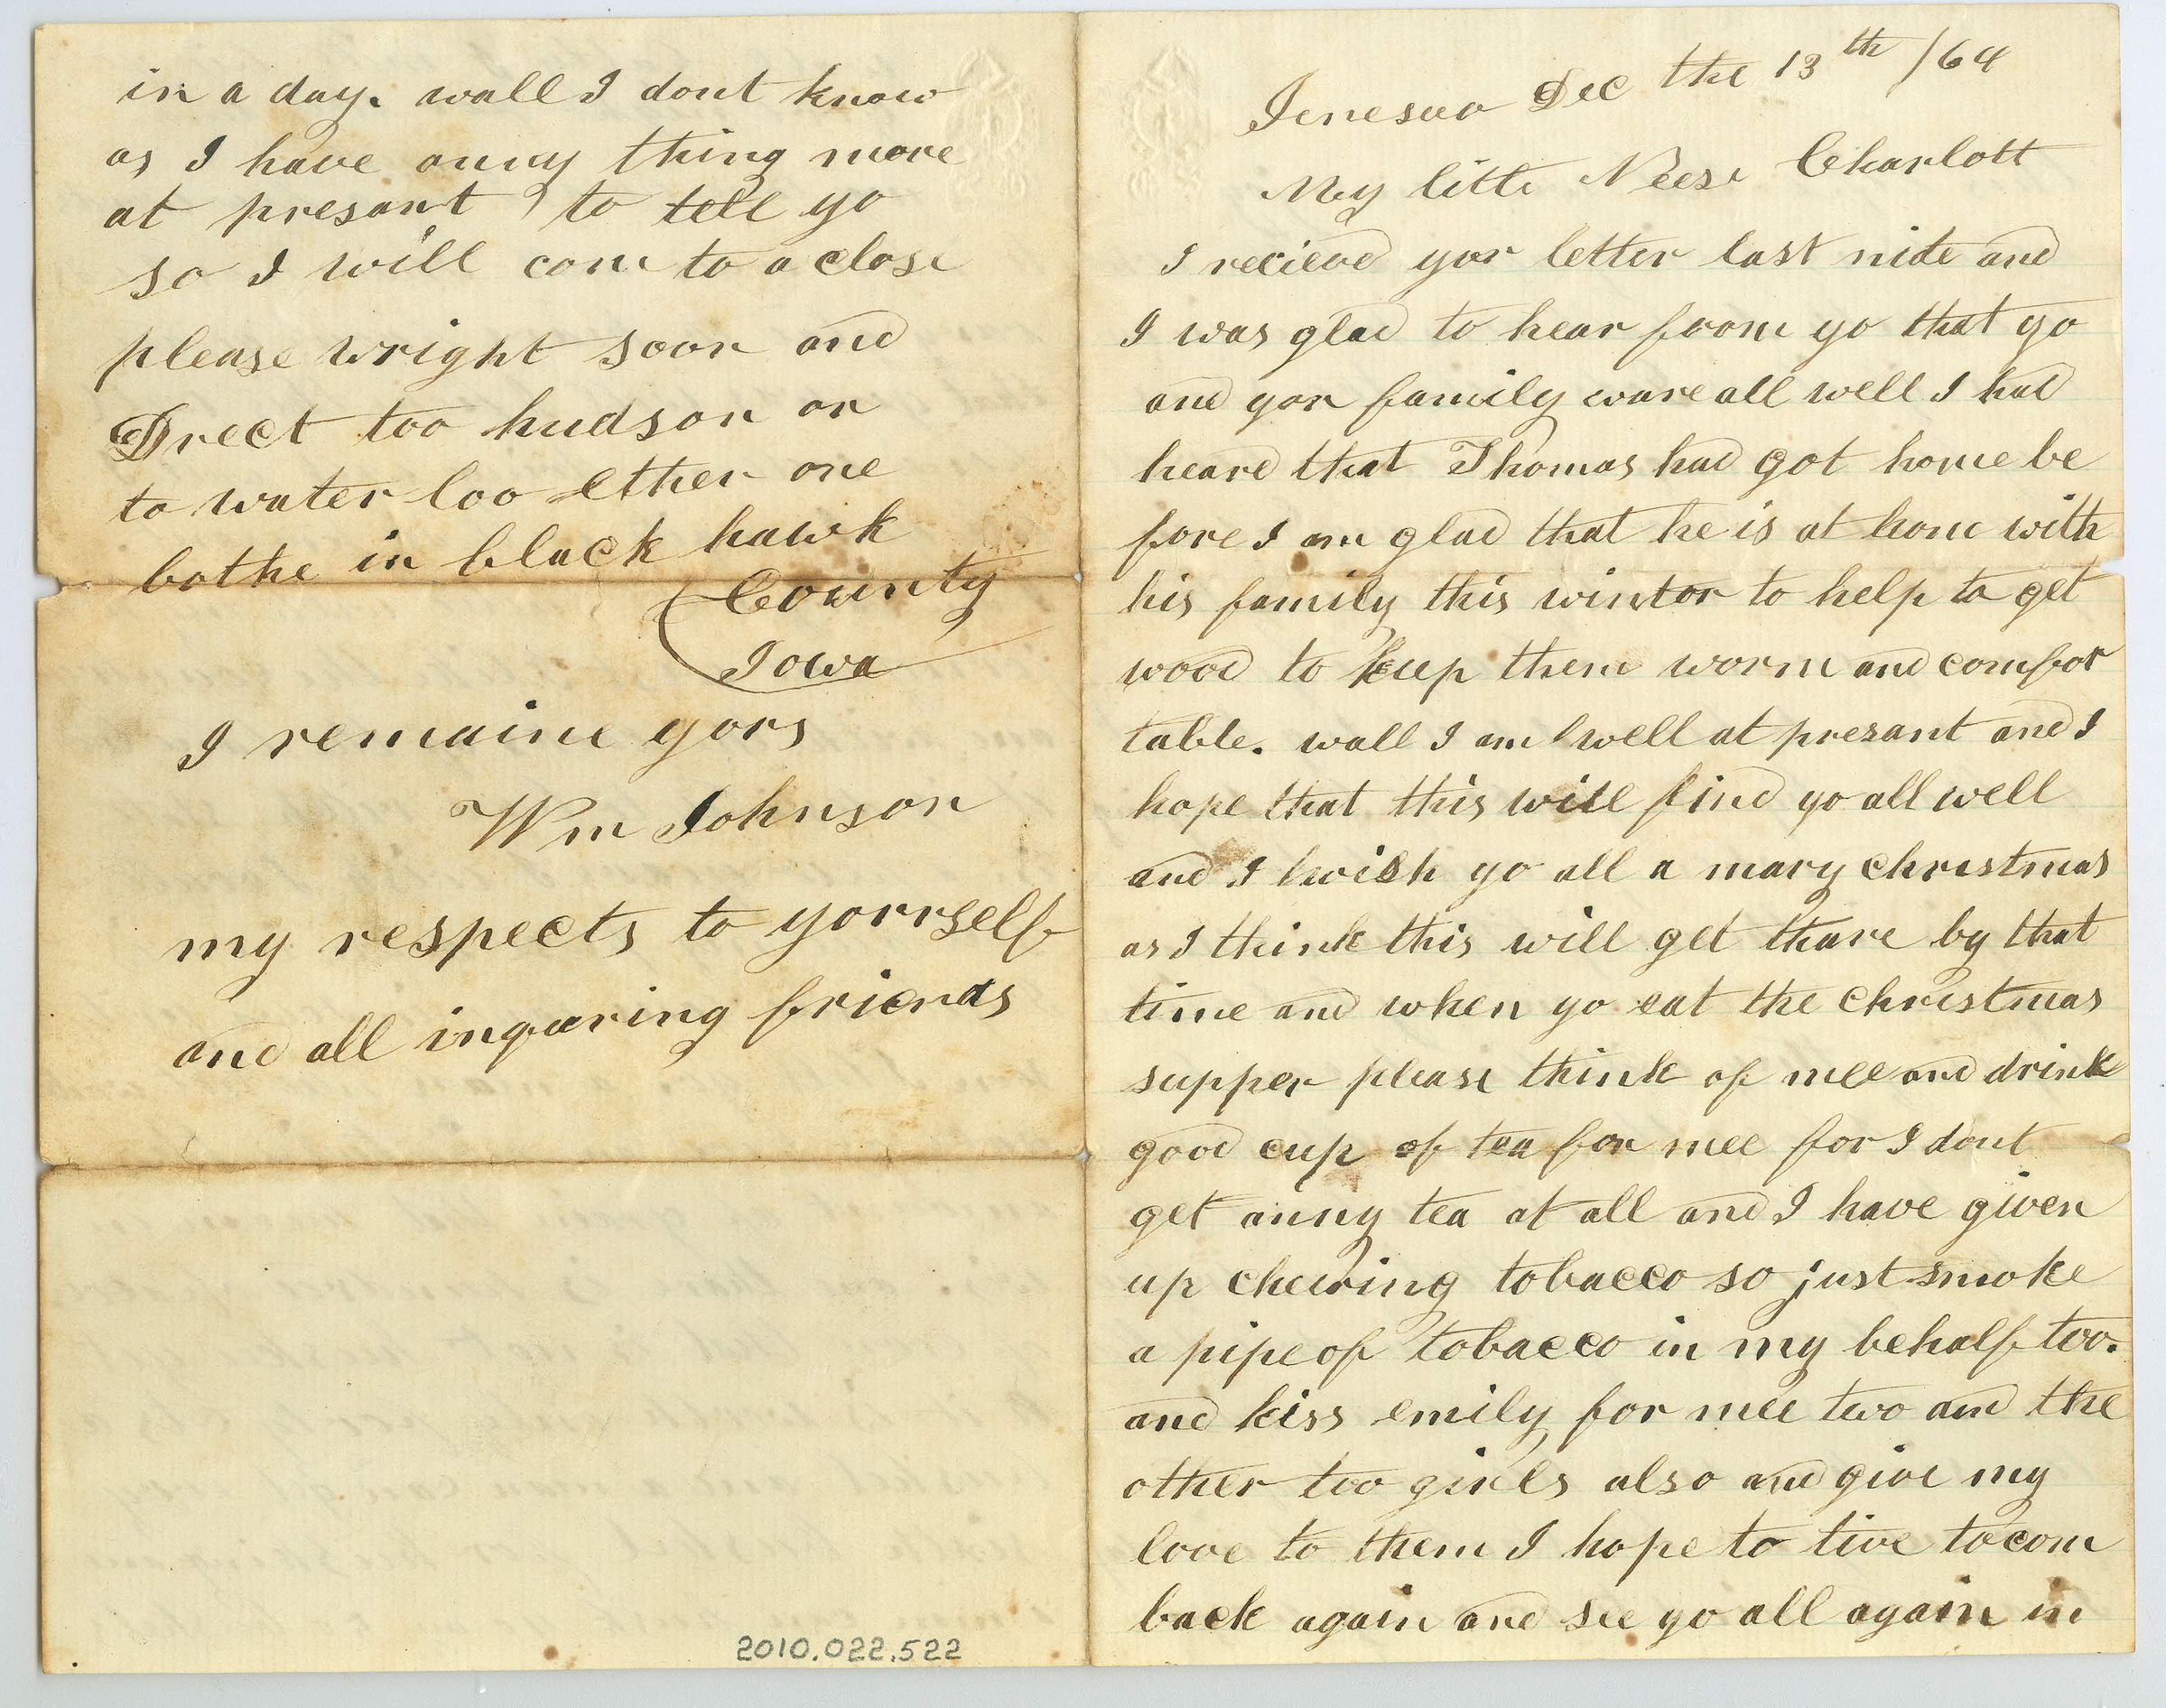 Jenesao Dec the 13th /64
My little Neese Charlott
I recieved yor letter last nite and
I was glad to hear from yo that yo
and yor family ware all well I had
heard that Thomas had got home be
fore I am glad that he is at home with
his family this wintor to help to get
wood to keep them worm and comfor
table. wall I am well at presant and I
hope that this will find yo all well
and I wish yo all a mary christmas
as I think this will get thare by that
time and when yo eat the christmas
supper please think of mee and drink
good cup of tea for mee for I dont
get anny tea at all and I have given
up chewing tobacco so just smoke
a pipe of tobacco in my behalf too.
and kiss emily for mee two and the
other too girels also and give my
love to them I hope to live to com
back again and see yo all again in
in a day. wall I dont know
as I have anny thing more
at presant to tell yo
so I will come to a close
please wright soon and
Drect too hudson or
to water loo ether one
bothe in black hawk
County
Iowa
I remaine yors
Wm Johnson
my respects to yorrself
and all inquering friends
2010.022.522